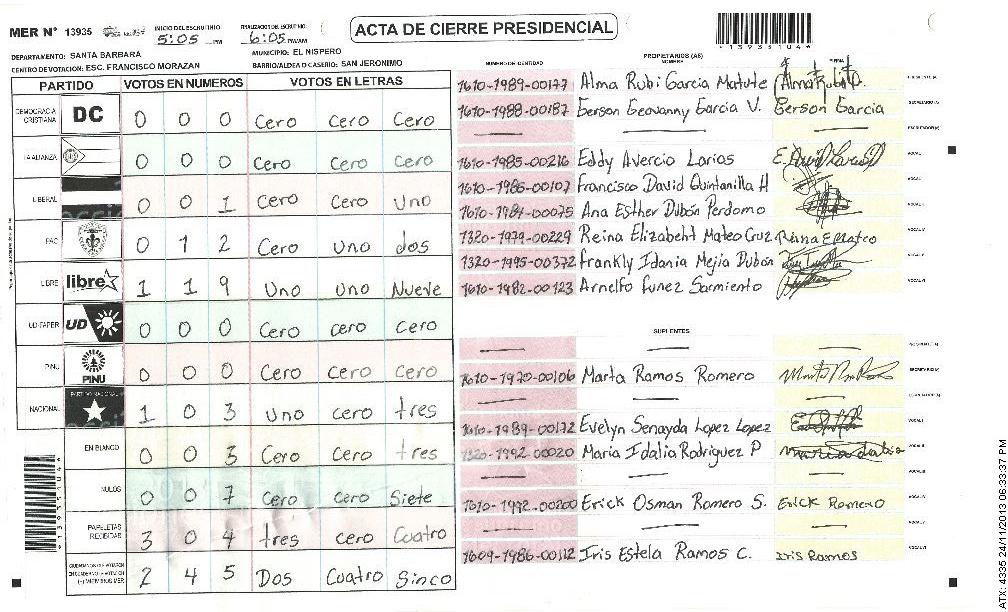 MER N° 13935
INICIO DEL ESCRUTINIO:
5:05 PM
FINALIZACION DEL ESCRUTINIO:
6:05 PM/AM
ACTA DE CIERRE PRESIDENCIAL
*13935104*
DEPARTAMENTO: SANTA BARBARA
MUNICIPIO: EL NISPERO
CENTRO DE VOTACION: ESC. FRANCISCO MORAZAN
BARRIO/ALDEA O CASERIO: SAN JERONIMO
PARTIDO VOTOS EN NUMEROS VOTOS EN LETRAS
DEMOCRACIA CRISTIANA DC 0 0 0 Cero Cero Cero
LA ALIANZA 0 0 0 Cero Cero Cero
LIBERAL 0 0 1 Cero Cero Uno
PAC 0 1 2 Cero Uno dos
LIBRE libre 1 1 9 Uno Uno Nueve
UD-FAPER UD 0 0 0 Cero cero Cero
PINU PINU 0 0 0 Cero Cero Cero
NACIONAL PARTIDO NACIONAL 1 0 3 Uno cero tres
EN BLANCO 0 0 3 Cero Cero tres
NULOS 0 0 7 Cero Cero Siete
PAPELETAS RECIBIDAS 3 0 4 tres cero Cuatro
2 4 5 Dos Cuatro Sinco
PROPIETARIOS (AS)
NUMERO DE IDENTIDAD NOMBRE FIRMA
1610-1989-00177 Alma Rubi Garcia Matute
1610-1988-00187 Gerson Geovanny Garcia V. Gerson Garcia
1610-1985-00216 Eddy Avercio Larios
1610-1986-00107 Francisco David Quintanilla H
1610-1984-00075 Ana Esther Dubón Perdomo
1320-1979-00229 Reina Elizabeht Mateo Cruz Reina E Mateo
1320-1995-00372 Frankly Idania Mejia Dubón
1610-1982-00123 Arnelfo Funez Sarmiento
SUPLENTES
1610-1970-00106 Marta Ramos Romero
1610-1989-00172 Evelyn Senayda Lopez Lopez
1320-1992-00020 Maria Idalia Rodriguez P
1610-1992-00200 Erick Osman Romero S. Erick Romero
1609-1986-00112 Iris Estela Ramos C. Iris Ramos
*13935104*
ATX: 4335 24/11/2013 06:33:37 PM